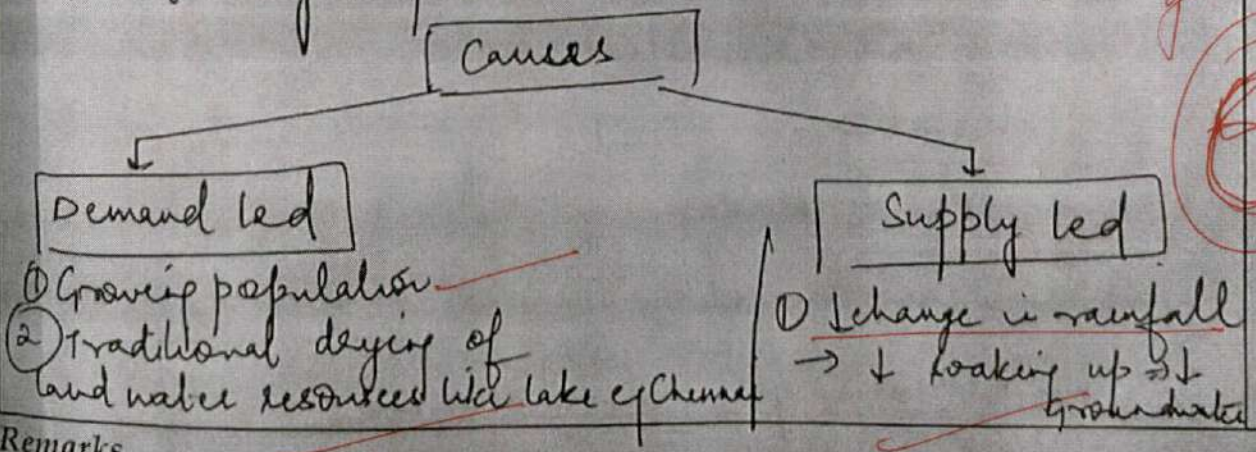 Causes
Demand led
Supply led
① Growing population
② Traditional drying of
land water resources like lake eg Chennai
① ↓change in rainfall
→ ↓ soaking up ⇒ ↓
Groundwater
Remarks